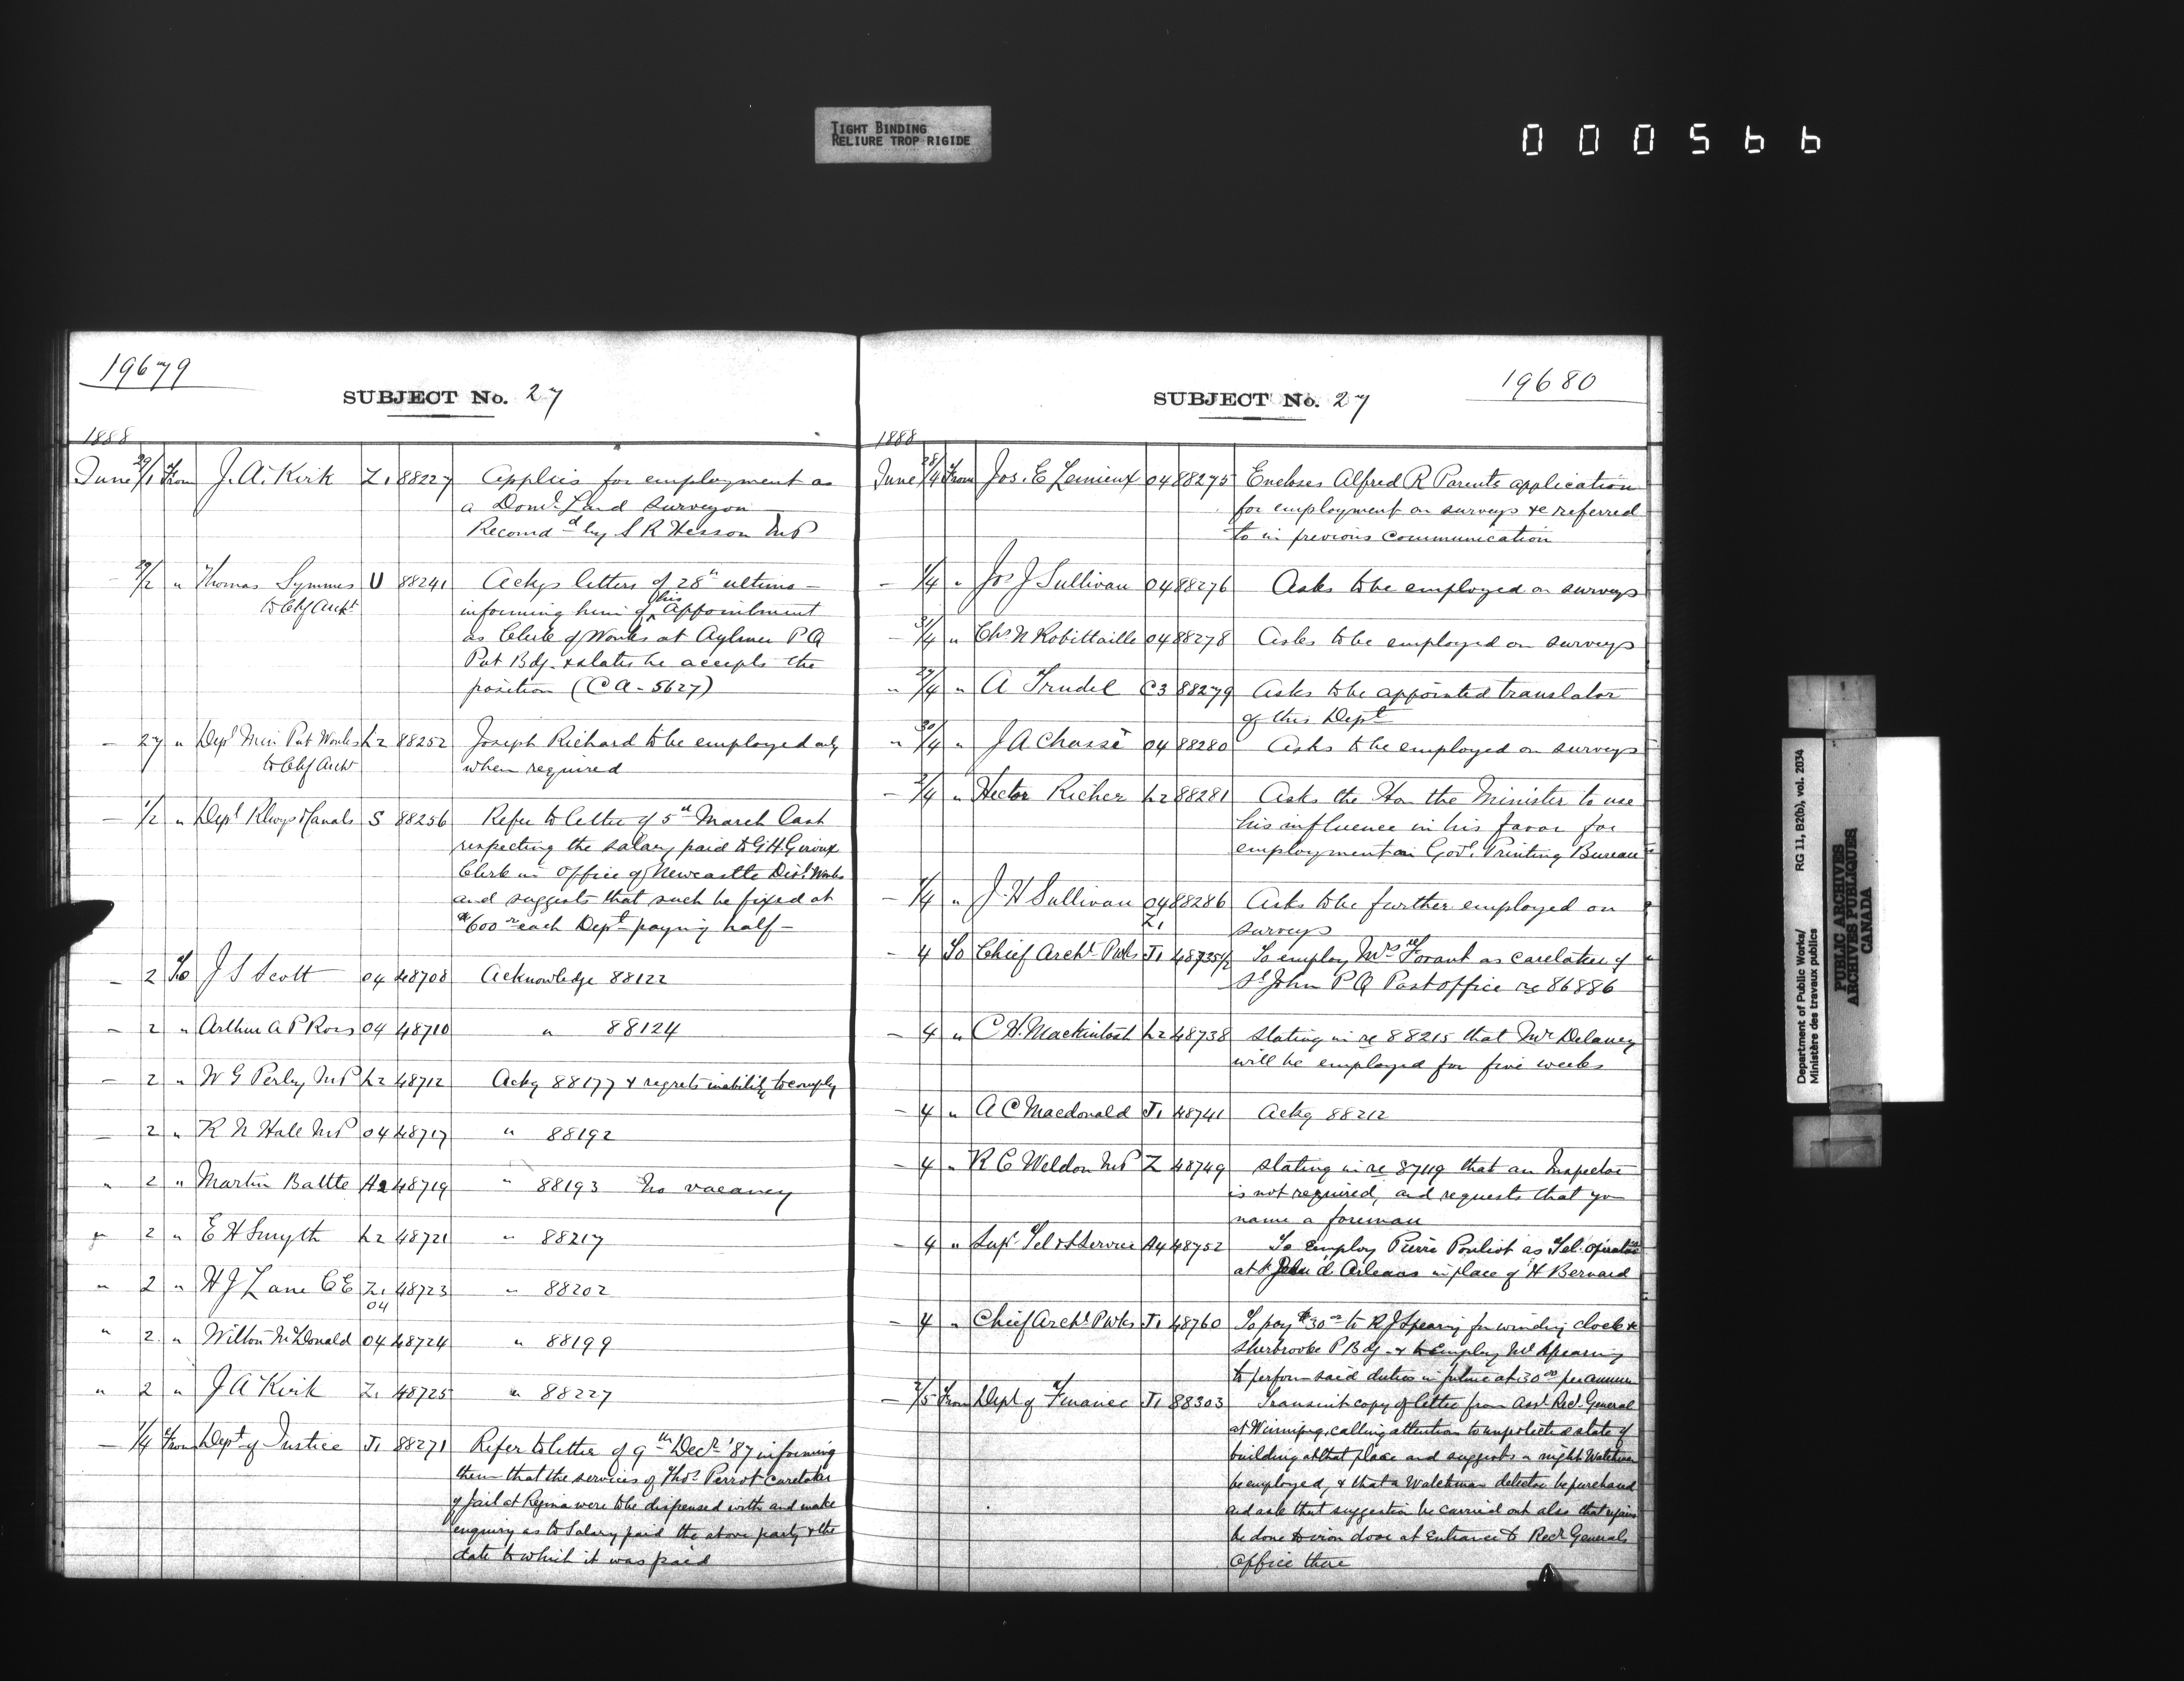 TIGHT BINDING
RELIURE TROP RIGIDE
000566
19679
SUBJECT No. 27
1888
June 29/1 From J. A. Kirk Z1 88227 Applies for employment as
a Domn Land Surveyor
Recomd by S R Hesson M P
— 29/2 " Thomas Symmes U 88241 Ackgs letters of 28th ultimo —
to Chf Archt informing him of his appointment
as Clerk of Works at Aylmer P Q
Pub Bdg. & states he accepts the
position (C A - 5627)
— 27 " Dept Min Pub Works L2 88252 Joseph Richard to be employed only
to Chf Archt when required
— 1/2 " Dept Rlwys & Canals S 88256 Refer to letter of 5th March last
respecting the salary paid to G H Giroux
Clerk in office of Newcastle Dist Works
and suggests that such be fixed at
$600 00 each Dept paying half —
— 2 To J S Scott 04 48708 Acknowledge 88122
— 2 " Arthur A P Ross 04 48710 " 88124
— 2 " W G Perley M P L2 48712 Ackg 88177 & regrets inability to comply
— 2 " R N Hall M P 04 48717 " 88192
" 2 " Martin Battle A2 48719 " 88193 No vacancy
" 2 " E H Smyth L2 48721 " 88217
" 2 " H J Lane C E Z1 48723 " 88202
04
" 2 " Wilton McDonald 04 48724 " 88199
" 2 " J A Kirk Z1 48725 " 88227
— 1/4 From Dept of Justice J1 88271 Refer to letter of 9th Decr '87 informing
them that the services of Thos Perrot Caretaker
of Jail at Regina were to be dispensed with and make
enquiry as to Salary paid the above party & the
date to which it was paid
19680
SUBJECT No. 27
1888
June 28/4 From Jos. E Lemieux 04 88275 Encloses Alfred R Parents application
for employment on surveys &c referred
to in previous communication
— 1/4 " Jos J Sullivan 04 88276 Asks to be employed on surveys
— 31/4 " Chs N Robittaille 04 88278 Asks to be employed on surveys
" 27/4 " A Trudel C3 88279 Asks to be appointed translator
of this Dept
" 30/4 " J A Chassé 04 88280 Asks to be employed on surveys
— 2/4 " Hector Richer L2 88281 Asks the Hon the Minister to use
his influence in his favor for
employment in Govt. Printing Bureau
— 1/4 " J. H Sullivan 04 88286 Asks to be further employed on
Z1 surveys
— 4 To Chief Archt Pwks J1 48735 1/2 To employ Mrs Forant as caretaker of
St John P Q Post office re 86886
— 4 " C H. Mackintosh L2 48738 Stating in re 88215 that Mr Delaney
will be employed for five weeks
— 4 " A C Macdonald J1 48741 Ackg 88212
— 4 " R C Weldon M P Z 48749 Stating in re 87119 that an Inspector
is not required, and requests that you
name a foreman
— 4 " Supt Tel & S Service A4 48752 To employ Pierre Pouliot as Tel. operator
at St Jean d'Orleans in place of H Bernard
— 4 " Chief Archt Pwks J1 48760 To pay $30 00 to R J Spearing for winding clock &
Sherbrooke P Bdg. & to employ Mr Spearing
to perform said duties in future at 30 00 per annum
— 2/5 From Dept of Finance J1 88303 Transmit copy of letter from Asst Recr General
at Winnipeg, calling attention to unprotected state of
building at that place and suggests a night Watchman
be employed, & that a Watchman detector be purchased
and ask that suggestion be carried out also that repairs
be done to iron door at entrance to Recr Generals
Office there
Department of Public Works/
Ministère des travaux publics
RG 11, B2(b), vol. 2034
PUBLIC ARCHIVES
ARCHIVES PUBLIQUES
CANADA